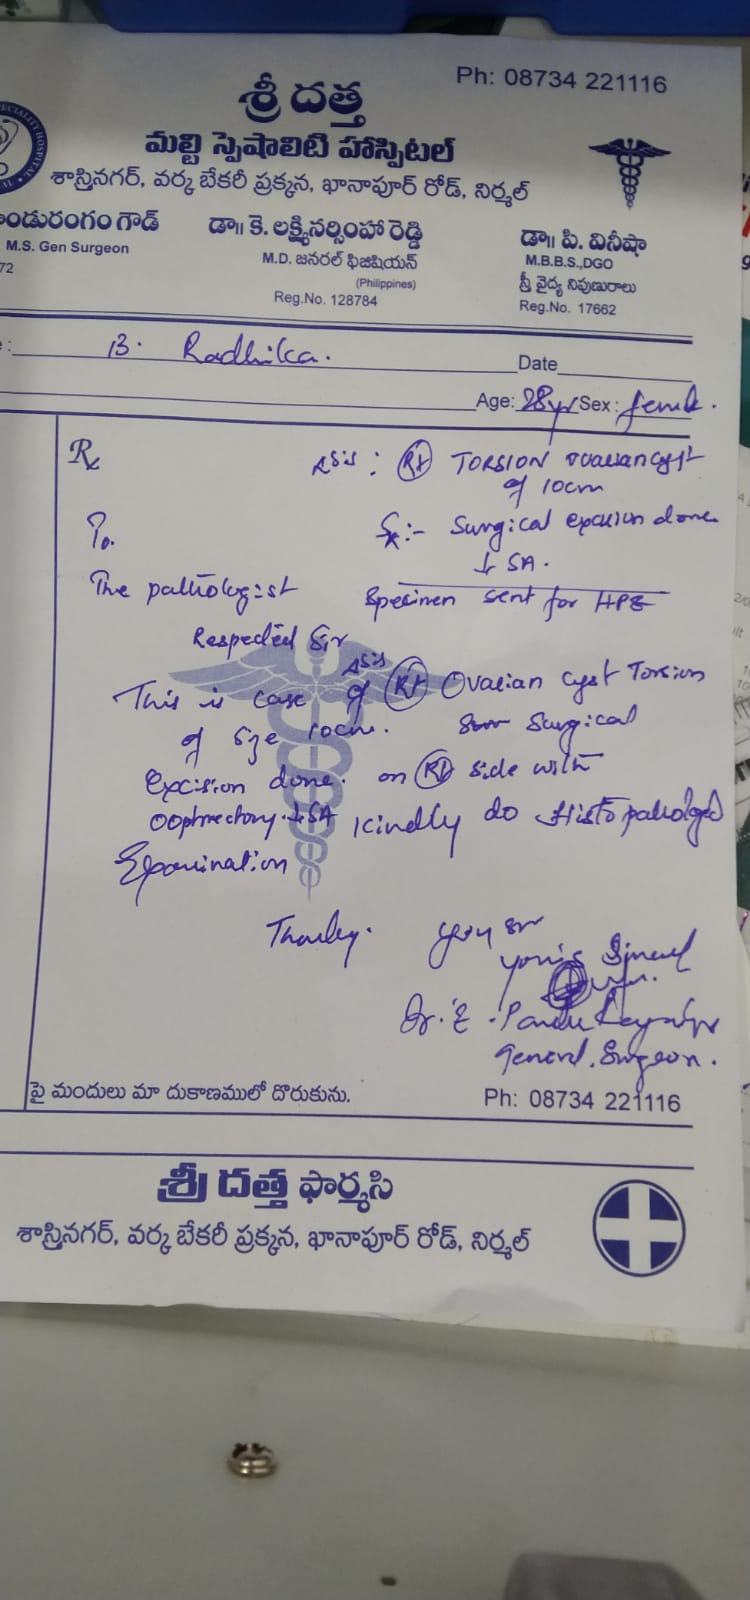 Ph: 08734 221116
శ్రీ దత్త
మల్టి స్పెషాలిటి హాస్పిటల్
శాస్త్రినగర్, వర్క బేకరీ ప్రక్కన, ఖానాపూర్ రోడ్, నిర్మల్
ండురంగం గౌడ్
M.S. Gen Surgeon
72
డా॥ కె. లక్ష్మినర్సింహా రెడ్డి
M.D. జనరల్ ఫిజిషియన్
(Philippines)
Reg.No. 128784
డా॥ పి. వినీషా
M.B.B.S.,DGO
స్త్రీ వైద్య నిపుణురాలు
Reg.No. 17662
B. Radhika. Date
Age: 28yr Sex: female.
Rx
: Rt TORSION ovarian cyst
of 10cm
To. Sx:- Surgical excision done
↓ SA.
The pathologist Specimen sent for HPE
Respected Sir
This is case of Rt Ovarian cyst Torsion
of size 10cm. Surgical
Excision done. on Rt side with
oophrectomy ↓SA kindly do Histopathological
Examination
Thanking you sir
Dr. E.
General Surgeon.
పై మందులు మా దుకాణములో దొరుకును. Ph: 08734 221116
శ్రీ దత్త ఫార్మసి
శాస్త్రినగర్, వర్క బేకరీ ప్రక్కన, ఖానాపూర్ రోడ్, నిర్మల్